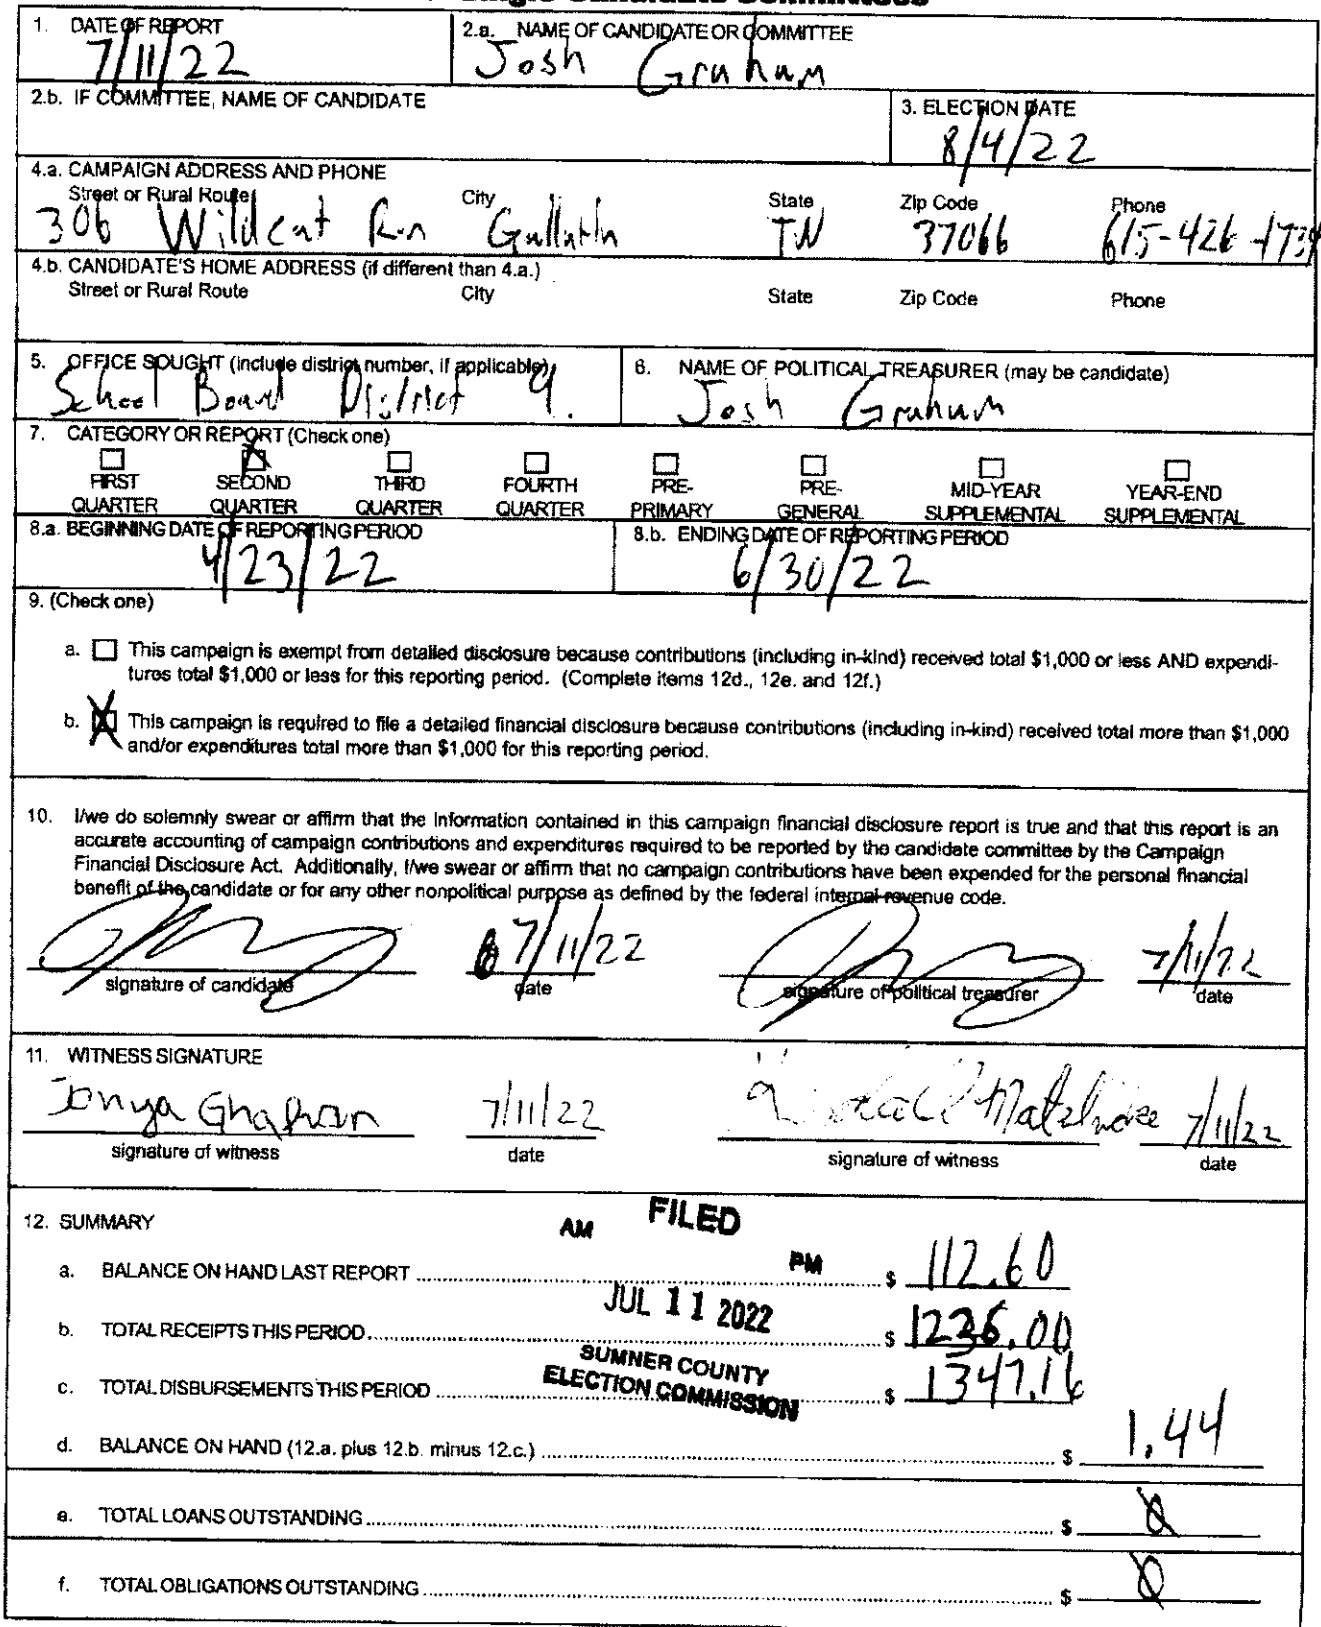 Single Candidate Committees
1. DATE OF REPORT
7/11/22
2.a. NAME OF CANDIDATE OR COMMITTEE
Josh Graham
2.b. IF COMMITTEE, NAME OF CANDIDATE
3. ELECTION DATE
8/4/22
4.a. CAMPAIGN ADDRESS AND PHONE
Street or Rural Route City State Zip Code Phone
306 Wildcat Run Gallatin TN 37066 615-426-173
4.b. CANDIDATE'S HOME ADDRESS (if different than 4.a.)
Street or Rural Route City State Zip Code Phone
5. OFFICE SOUGHT (include district number, if applicable)
School Board District 9.
6. NAME OF POLITICAL TREASURER (may be candidate)
Josh Graham
7. CATEGORY OR REPORT (Check one)
FIRST QUARTER
SECOND QUARTER
THIRD QUARTER
FOURTH QUARTER
PRE-PRIMARY
PRE-GENERAL
MID-YEAR SUPPLEMENTAL
YEAR-END SUPPLEMENTAL
8.a. BEGINNING DATE OF REPORTING PERIOD
4/23/22
8.b. ENDING DATE OF REPORTING PERIOD
6/30/22
9. (Check one)
a. This campaign is exempt from detailed disclosure because contributions (including in-kind) received total $1,000 or less AND expendi-
tures total $1,000 or less for this reporting period. (Complete items 12d., 12e. and 12f.)
b. This campaign is required to file a detailed financial disclosure because contributions (including in-kind) received total more than $1,000
and/or expenditures total more than $1,000 for this reporting period.
10. I/we do solemnly swear or affirm that the information contained in this campaign financial disclosure report is true and that this report is an
accurate accounting of campaign contributions and expenditures required to be reported by the candidate committee by the Campaign
Financial Disclosure Act. Additionally, I/we swear or affirm that no campaign contributions have been expended for the personal financial
benefit of the candidate or for any other nonpolitical purpose as defined by the federal internal revenue code.
7/11/22 7/11/22
signature of candidate date signature of political treasurer date
11. WITNESS SIGNATURE
Tonya Graham 7/11/22 7/11/22
signature of witness date signature of witness date
12. SUMMARY
AM FILED PM
JUL 11 2022
SUMNER COUNTY
ELECTION COMMISSION
a. BALANCE ON HAND LAST REPORT $ 112.60
b. TOTAL RECEIPTS THIS PERIOD $ 1236.00
c. TOTAL DISBURSEMENTS THIS PERIOD $ 1347.16
d. BALANCE ON HAND (12.a. plus 12.b. minus 12.c.) $ 1.44
e. TOTAL LOANS OUTSTANDING $ 0
f. TOTAL OBLIGATIONS OUTSTANDING $ 0